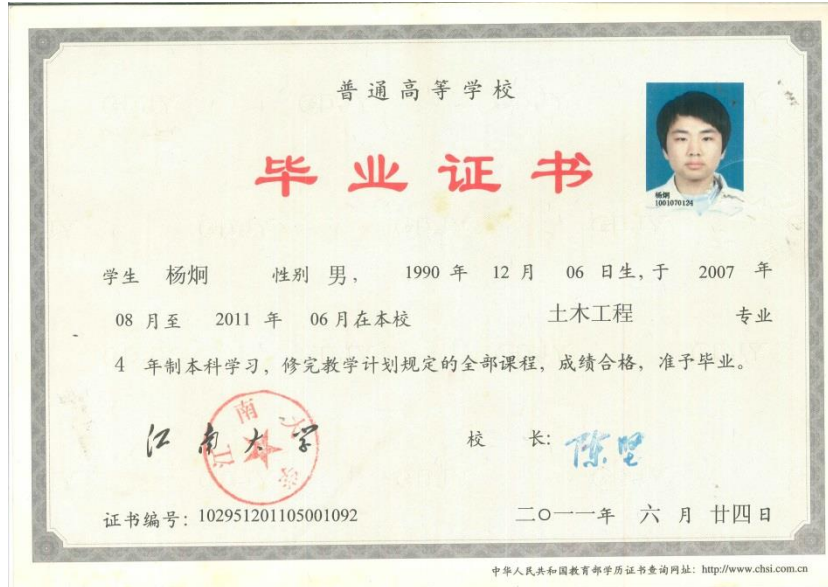 普通高等学校
毕业证书
杨炯
1001070124
学生 杨炯 性别 男， 1990 年 12 月 06 日生，于 2007 年
08 月至 2011 年 06 月在本校 土木工程 专业
4 年制本科学习，修完教学计划规定的全部课程，成绩合格，准予毕业。
江南大学
江南大学
校 长：
陈坚
证书编号：102951201105001092
二〇一一年 六 月 廿四日
中华人民共和国教育部学历证书查询网址：http://www.chsi.com.cn